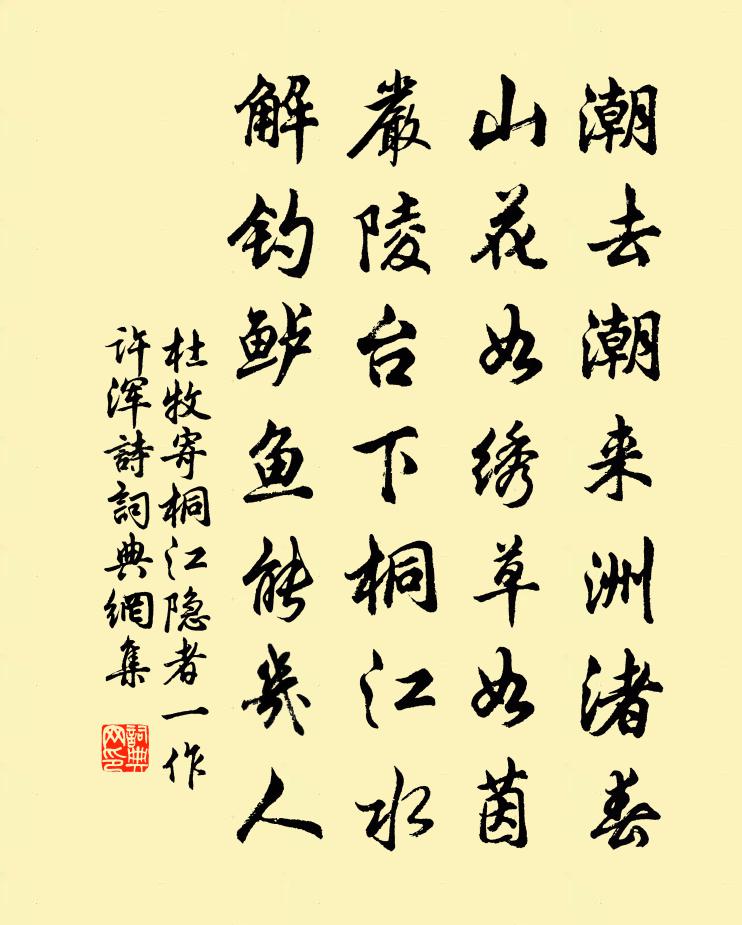 潮去潮来洲渚春
山花如绣草如茵
嚴陵台下桐江水
解钓鲈鱼能几人
杜牧寄桐江隐者一作
许浑詩詞典網集
詞典网印